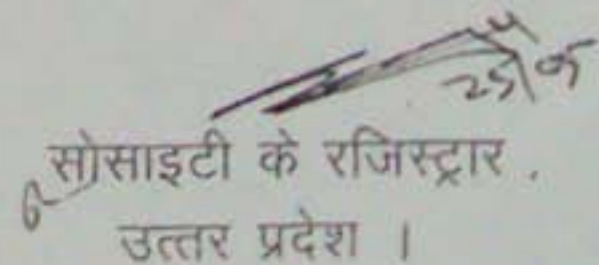 सोसाइटी के रजिस्ट्रार .
उत्तर प्रदेश ।